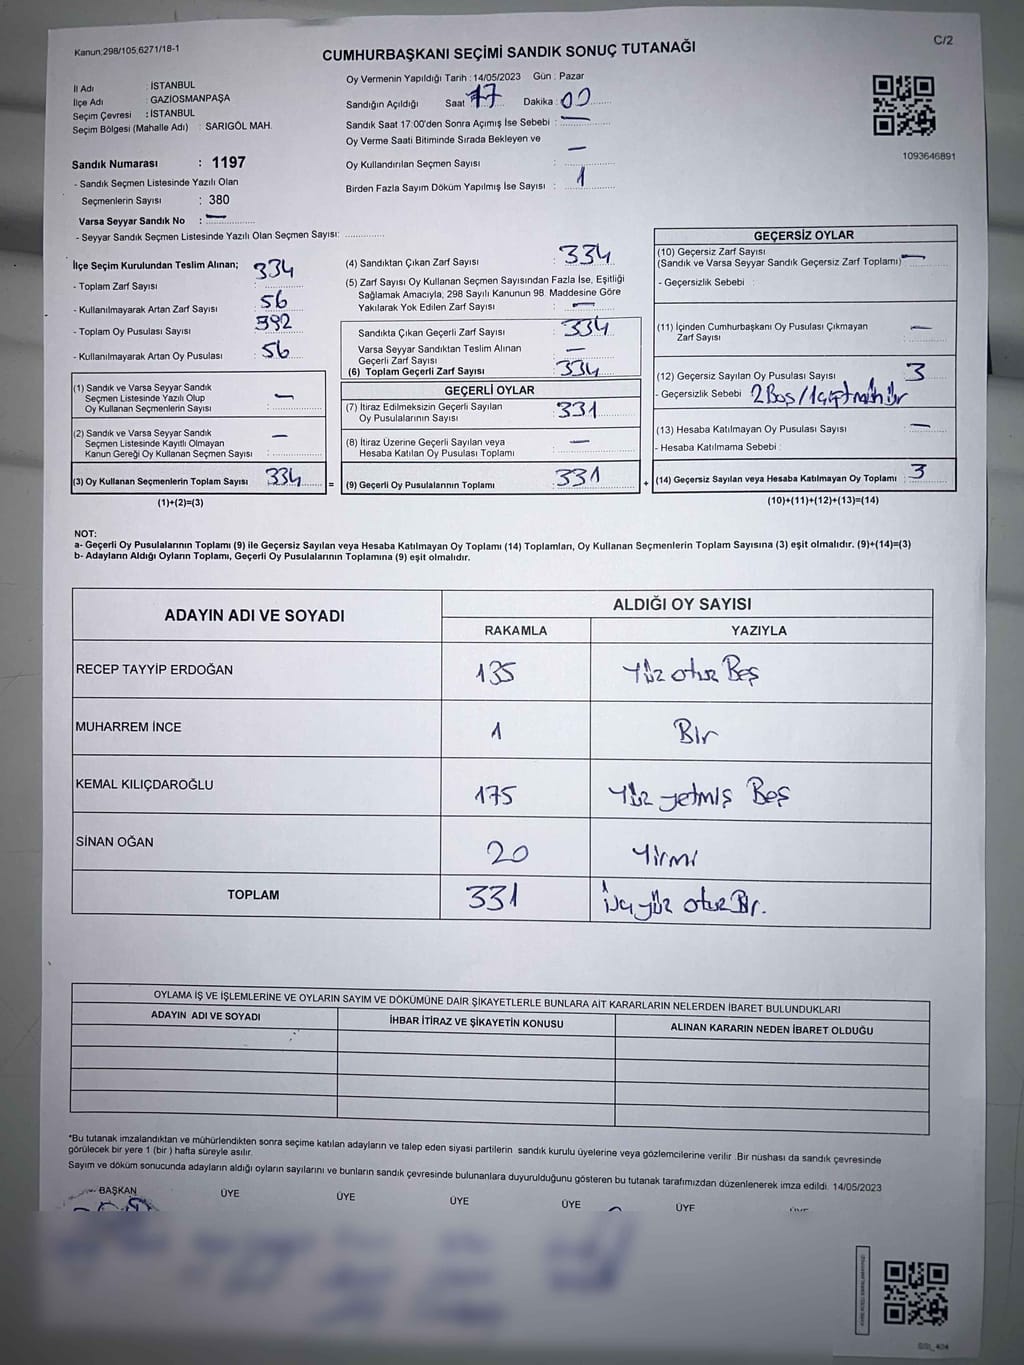 Kanun:298/105,6271/18-1
C/2
CUMHURBAŞKANI SEÇİMİ SANDIK SONUÇ TUTANAĞI
İl Adı : İSTANBUL
İlçe Adı : GAZİOSMANPAŞA
Seçim Çevresi : İSTANBUL
Seçim Bölgesi (Mahalle Adı) : SARIGÖL MAH.
Oy Vermenin Yapıldığı Tarih : 14/05/2023 Gün : Pazar
Sandığın Açıldığı Saat 17 Dakika : 00
Sandık Saat 17:00'den Sonra Açımış İse Sebebi : —
Oy Verme Saati Bitiminde Sırada Bekleyen ve
Oy Kullandırılan Seçmen Sayısı : —
Birden Fazla Sayım Döküm Yapılmış İse Sayısı : 1
1093646891
Sandık Numarası : 1197
- Sandık Seçmen Listesinde Yazılı Olan
Seçmenlerin Sayısı : 380
Varsa Seyyar Sandık No : —
- Seyyar Sandık Seçmen Listesinde Yazılı Olan Seçmen Sayısı:
İlçe Seçim Kurulundan Teslim Alınan;
- Toplam Zarf Sayısı : 334
- Kullanılmayarak Artan Zarf Sayısı : 56
- Toplam Oy Pusulası Sayısı : 392
- Kullanılmayarak Artan Oy Pusulası : 56
(1) Sandık ve Varsa Seyyar Sandık
Seçmen Listesinde Yazılı Olup
Oy Kullanan Seçmenlerin Sayısı : —
(2) Sandık ve Varsa Seyyar Sandık
Seçmen Listesinde Kayıtlı Olmayan
Kanun Gereği Oy Kullanan Seçmen Sayısı : —
(3) Oy Kullanan Seçmenlerin Toplam Sayısı : 334 =
(1)+(2)=(3)
(4) Sandıktan Çıkan Zarf Sayısı : 334
(5) Zarf Sayısı Oy Kullanan Seçmen Sayısından Fazla İse, Eşitliği
Sağlamak Amacıyla, 298 Sayılı Kanunun 98. Maddesine Göre
Yakılarak Yok Edilen Zarf Sayısı : —
Sandıkta Çıkan Geçerli Zarf Sayısı : 334
Varsa Seyyar Sandıktan Teslim Alınan
Geçerli Zarf Sayısı : —
(6) Toplam Geçerli Zarf Sayısı : 334
GEÇERLİ OYLAR
(7) İtiraz Edilmeksizin Geçerli Sayılan
Oy Pusulalarının Sayısı : 331
(8) İtiraz Üzerine Geçerli Sayılan veya
Hesaba Katılan Oy Pusulası Toplamı : —
(9) Geçerli Oy Pusulalarının Toplamı : 331 +
GEÇERSİZ OYLAR
(10) Geçersiz Zarf Sayısı
(Sandık ve Varsa Seyyar Sandık Geçersiz Zarf Toplamı) —
- Geçersizlik Sebebi :
(11) İçinden Cumhurbaşkanı Oy Pusulası Çıkmayan
Zarf Sayısı : —
(12) Geçersiz Sayılan Oy Pusulası Sayısı : 3
- Geçersizlik Sebebi 2 Boş / 1
(13) Hesaba Katılmayan Oy Pusulası Sayısı : —
- Hesaba Katılmama Sebebi :
(14) Geçersiz Sayılan veya Hesaba Katılmayan Oy Toplamı : 3
(10)+(11)+(12)+(13)=(14)
NOT:
a- Geçerli Oy Pusulalarının Toplamı (9) ile Geçersiz Sayılan veya Hesaba Katılmayan Oy Toplamı (14) Toplamları, Oy Kullanan Seçmenlerin Toplam Sayısına (3) eşit olmalıdır. (9)+(14)=(3)
b- Adayların Aldığı Oyların Toplamı, Geçerli Oy Pusulalarının Toplamına (9) eşit olmalıdır.
ADAYIN ADI VE SOYADI
ALDIĞI OY SAYISI
RAKAMLA YAZIYLA
RECEP TAYYİP ERDOĞAN 135 Yüz otuz Beş
MUHARREM İNCE 1 Bir
KEMAL KILIÇDAROĞLU 175 Yüz yetmiş Beş
SİNAN OĞAN 20 Yirmi
TOPLAM 331 üç yüz otuz Bir.
OYLAMA İŞ VE İŞLEMLERİNE VE OYLARIN SAYIM VE DÖKÜMÜNE DAİR ŞİKAYETLERLE BUNLARA AİT KARARLARIN NELERDEN İBARET BULUNDUKLARI
ADAYIN ADI VE SOYADI İHBAR İTİRAZ VE ŞİKAYETİN KONUSU ALINAN KARARIN NEDEN İBARET OLDUĞU
*Bu tutanak imzalandıktan ve mühürlendikten sonra seçime katılan adayların ve talep eden siyasi partilerin sandık kurulu üyelerine veya gözlemcilerine verilir .Bir nüshası da sandık çevresinde
görülecek bir yere 1 (bir ) hafta süreyle asılır.
Sayım ve döküm sonucunda adayların aldığı oyların sayılarını ve bunların sandık çevresinde bulunanlara duyurulduğunu gösteren bu tutanak tarafımızdan düzenlenerek imza edildi. 14/05/2023
BAŞKAN ÜYE ÜYE ÜYE ÜYE ÜYE